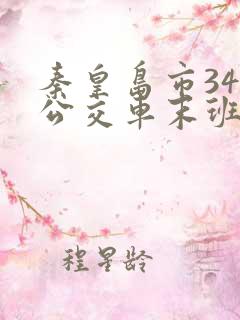 秦皇岛市34
公交车末班
程星龄